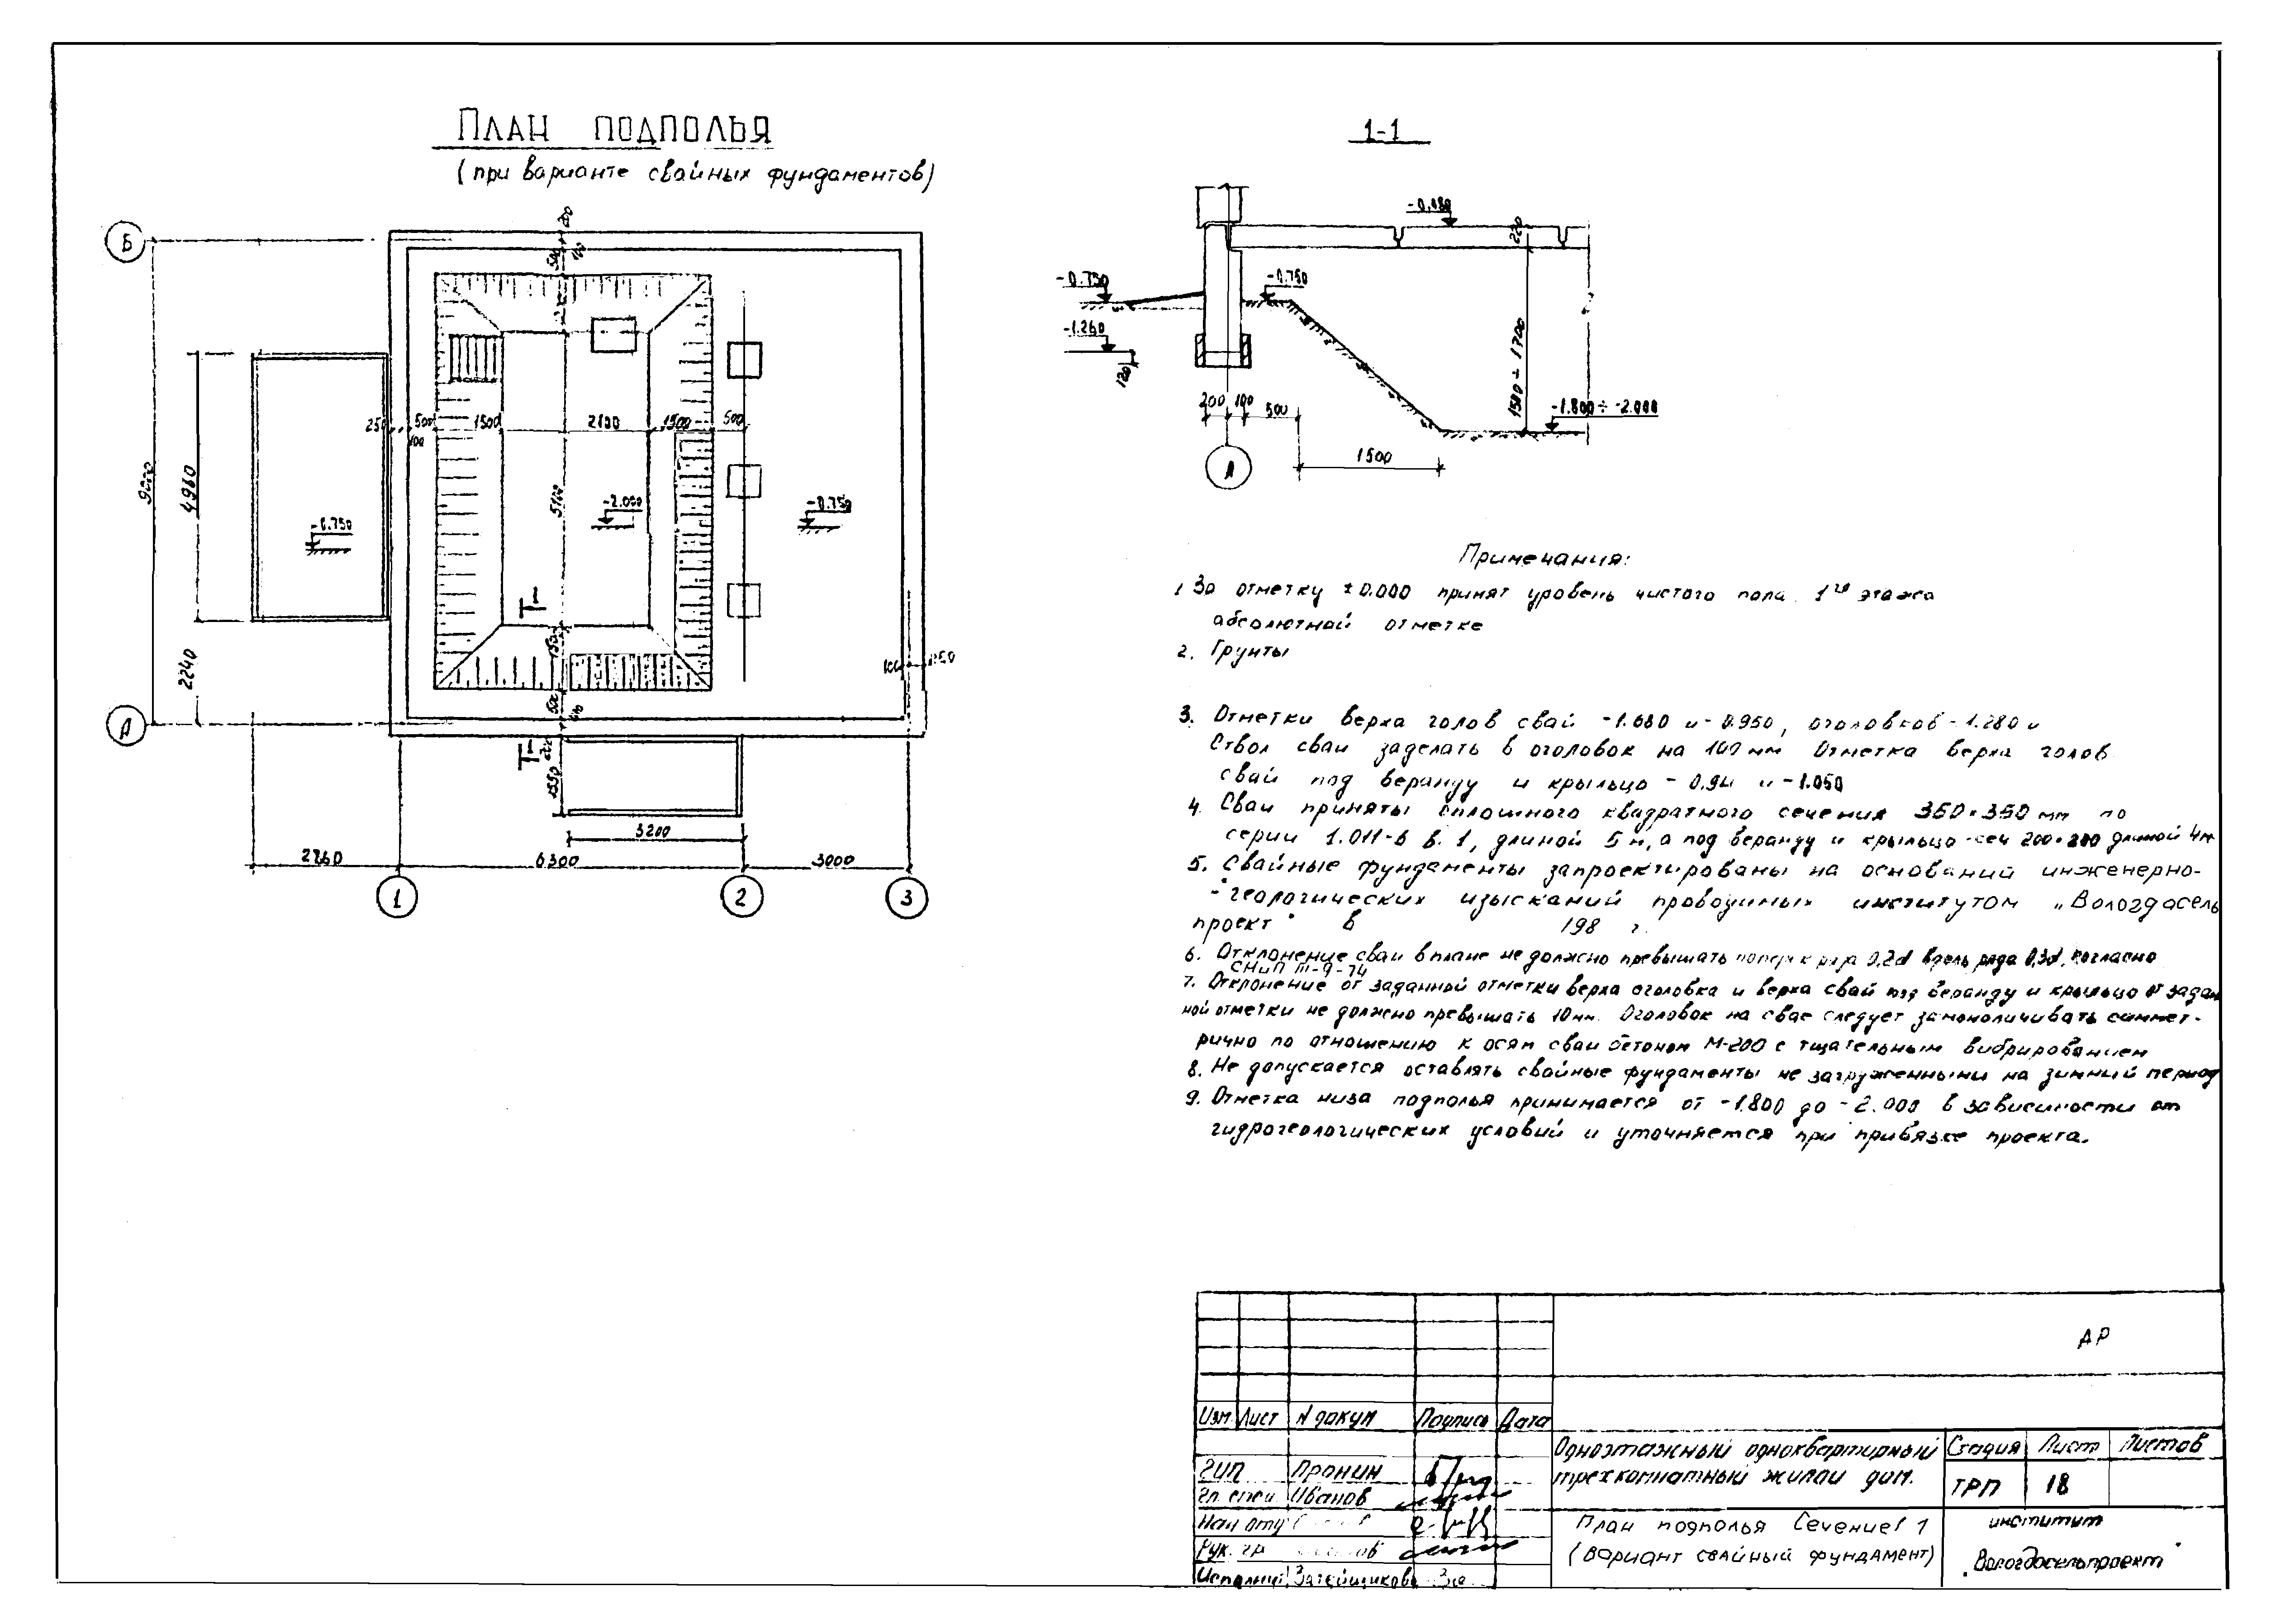 План подполья
(при варианте свайных фундаментов)
1-1
Б
А
9000
4960
2240
250
500
100
1500
2100
1500
500
200
500
100
5100
1500
500
-0.750
-2.000
-0.750
1
1
1550
3200
2760
6300
3000
1
2
3
-0.480
220
-0.750
-0.750
-1.260
120
200
100
500
1500
1580 ÷ 1700
-1.800 ÷ -2.000
А
Примечания:
1 За отметку ±0.000 принят уровень чистого пола 1го этажа
абсолютной отметке
2. Грунты
3. Отметки верха голов свай -1.680 и -0.950, оголовков -1.280 и
Ствол сваи заделать в оголовок на 100 мм Отметка верха голов
свай под веранду и крыльцо и -1.050
4. Сваи приняты сплошного квадратного сечения 350×350 мм по
серии 1.011-6 в. 1, длиной 5 м, а под веранду и крыльцо сеч 200×200 длиной 4м
5. Свайные фундаменты запроектированы на оснований инженерно-
-геологических изысканий проводимых институтом „Вологдасель
проект" в 198 г.
6. Отклонение сваи в плане не должно превышать поперек ряда 0,2d вдоль ряда 0,3d, согласно
СНиП III-9-74
7. Отклонение от заданной отметки верха оголовка и верха свай под веранду и крыльцо от задан
ной отметки не должно превышать 10мм. Оголовок на свае следует замоноличивать симмет-
рично по отношению к осям сваи бетоном М-200 с тщательным вибрированием
8. Не допускается оставлять свайные фундаменты не загруженными на зимний период
9. Отметка низа подполья принимается от -1.800 до -2.000 в зависимости от
гидрогеологических условий и уточняется при привязке проекта.
АР
Изм. Лист N докум Подпись Дата
Одноэтажный одноквартирный
трехкомнатный жилой дом.
Стадия Лист Листов
ТРП 18
ГИП Пронин
Гл. спец Иванов
Нач отд
Рук. гр
Исполнил Затейщикова
План подполья Сечение 1
(вариант свайный фундамент)
институт
„Вологдосельпроект"